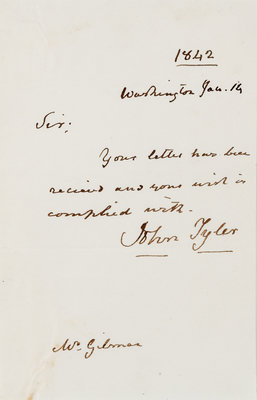 1842
Washington Jan. 14
Sir;
Your letter has been
recieved and your wish is
complied with.
John Tyler
Mr Gilman